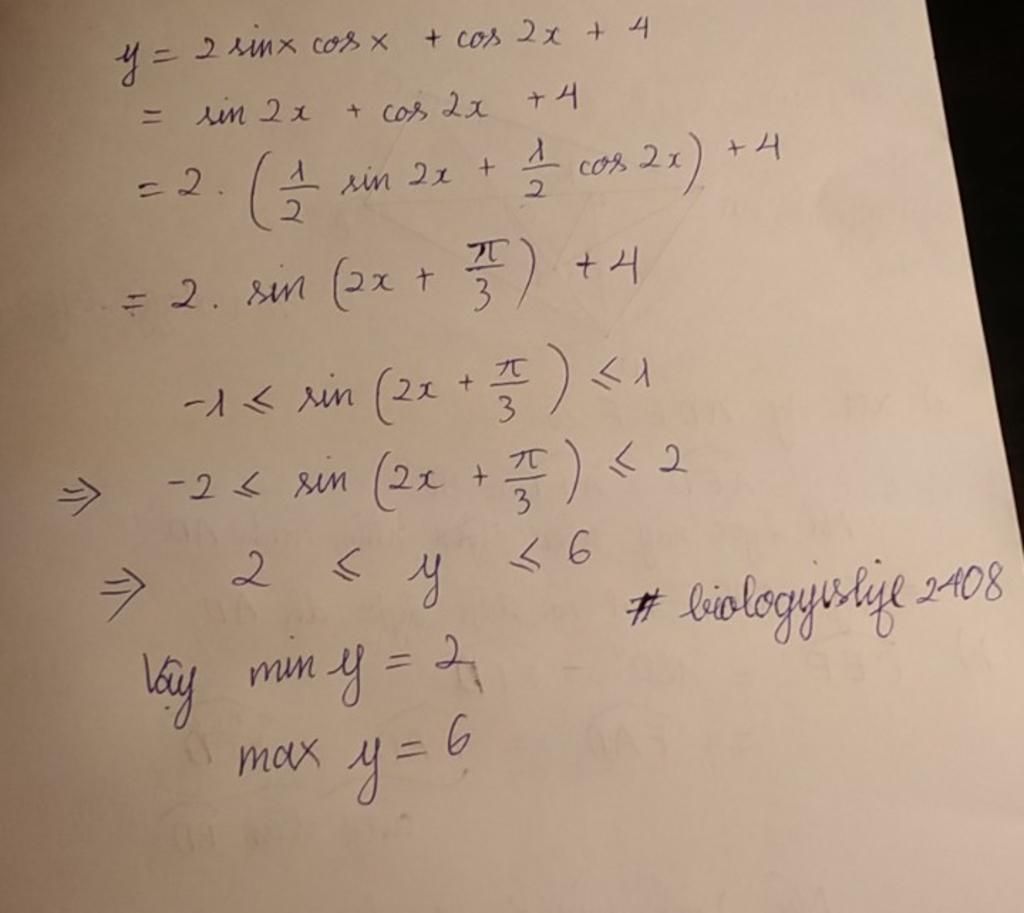 y = 2 sinx cosx + cos 2x + 4
= sin 2x + cos 2x + 4
= 2 . (1/2 sin 2x + 1/2 cos 2x) + 4
= 2 . sin (2x + π/3) + 4
-1 ≤ sin (2x + π/3) ≤ 1
⇒ -2 ≤ sin (2x + π/3) ≤ 2
⇒ 2 ≤ y ≤ 6
# biologyislife2408
Vậy min y = 2
max y = 6